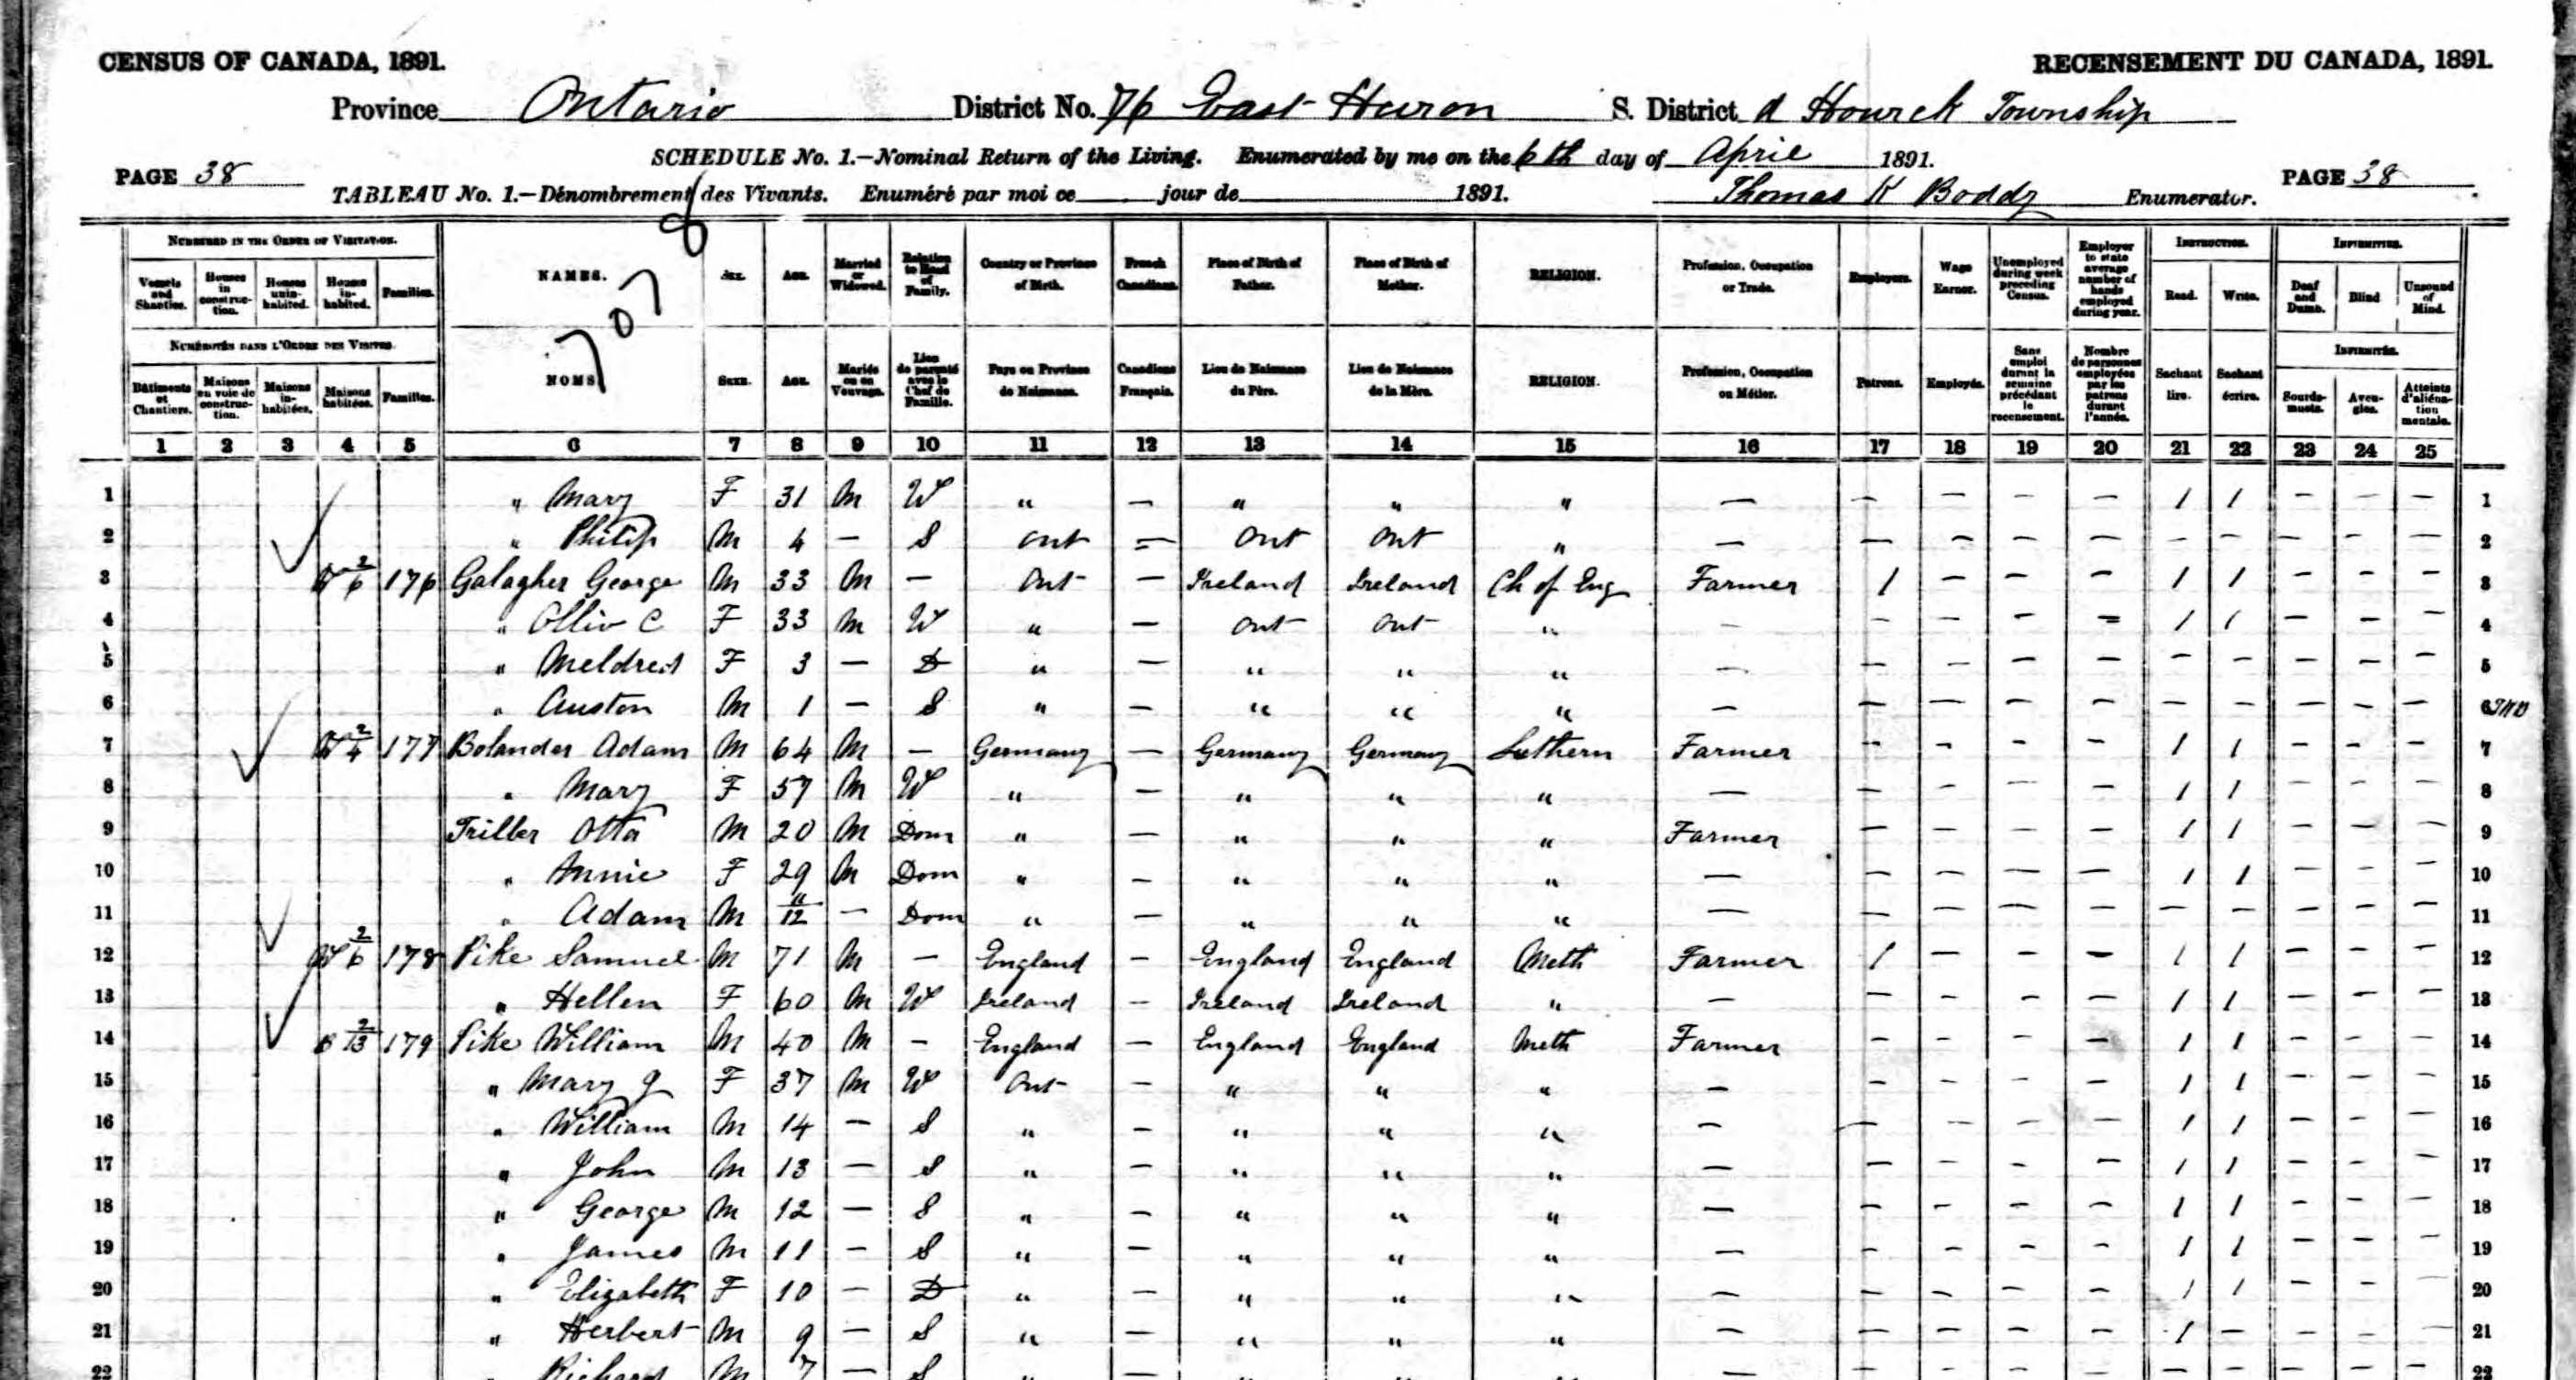 CENSUS OF CANADA, 1891. RECENSEMENT DU CANADA, 1891.
Province Ontario District No. 76 East Huron S. District d Howick Township
SCHEDULE No. 1.—Nominal Return of the Living. Enumerated by me on the 6th day of April 1891.
PAGE 38 PAGE 38
TABLEAU No. 1.—Dénombrement des Vivants. Enuméré par moi ce jour de 1891. Thomas K Boddy Enumerator.
7078
NUMBERED IN THE ORDER OF VISITATION.
Vessels and Shanties. Houses in construction. Houses uninhabited. Houses inhabited. Families. NAMES. SEX. AGE. Married or Widowed. Relation to Head of Family. Country or Province of Birth. French Canadians. Place of Birth of Father. Place of Birth of Mother. RELIGION. Profession, Occupation or Trade. Employers. Wage Earner. Unemployed during week preceding Census. Employer to state average number of hands employed during year. INSTRUCTION. Read. Write. INFIRMITIES. Deaf and Dumb. Blind Unsound of Mind.
NUMÉROTÉS DANS L'ORDRE DES VISITES.
Bâtiments et Chantiers. Maisons en voie de construction. Maisons inhabitées. Maisons habitées. Familles. NOMS SEXE. AGE. Mariés ou en Veuvage. Lien de parenté avec le Chef de Famille. Pays ou Province de Naissance. Canadiens Français. Lieu de Naissance du Père. Lieu de Naissance de la Mère. RELIGION. Profession, Occupation ou Métier. Patrons. Employés. Sans emploi durant la semaine précédant le recensement. Nombre de personnes employées par les patrons durant l'année. Sachant lire. Sachant écrire. INFIRMITÉS. Sourds-muets. Aveugles. Atteints d'aliénation mentale.
1 2 3 4 5 6 7 8 9 10 11 12 13 14 15 16 17 18 19 20 21 22 23 24 25
1 " Mary F 31 M W " — " " " — — — — — 1 1 — — — 1
2 " Philip M 4 — S Ont — Ont Ont " — — — — — — — — — — 2
3 2/6 176 Galagher George M 33 M — Ont — Ireland Ireland Ch of Eng Farmer 1 — — — 1 1 — — — 3
4 " Olliv C F 33 M W " — Ont Ont " — — — — — 1 1 — — — 4
5 " Meldred F 3 — D " — " " " — — — — — — — — — — 5
6 " Auston M 1 — S " — " " " — — — — — — — — — — 6
7 2/4 177 Bolander Adam M 64 M — Germany — Germany Germany Luthern Farmer — — — — 1 1 — — — 7
8 " Mary F 57 M W " — " " " — — — — — 1 1 — — — 8
9 Triller Otta M 20 M Dom " — " " " Farmer — — — — 1 1 — — — 9
10 " Annie F 29 M Dom " — " " " — — — — — 1 1 — — — 10
11 " Adam M 11/12 — Dom " — " " " — — — — — — — — — — 11
12 2/6 178 Pike Samuel M 71 M — England — England England Meth Farmer 1 — — — 1 1 — — — 12
13 " Hellen F 60 M W Ireland — Ireland Ireland " — — — — — 1 1 — — — 13
14 2/13 179 Pike William M 40 M — England — England England Meth Farmer — — — — 1 1 — — — 14
15 " Mary J F 37 M W Ont — " " " — — — — — 1 1 — — — 15
16 " William M 14 — S " — " " " — — — — — 1 1 — — — 16
17 " John M 13 — S " — " " " — — — — — 1 1 — — — 17
18 " George M 12 — S " — " " " — — — — — 1 1 — — — 18
19 " James M 11 — S " — " " " — — — — — 1 1 — — — 19
20 " Elizabeth F 10 — D " — " " " — — — — — 1 1 — — 20
21 " Herbert M 9 — S " — " " " — — — — — 1 — — — — 21
22 " Richard M 7 — S " — " " " — — — — — — — — — — 22